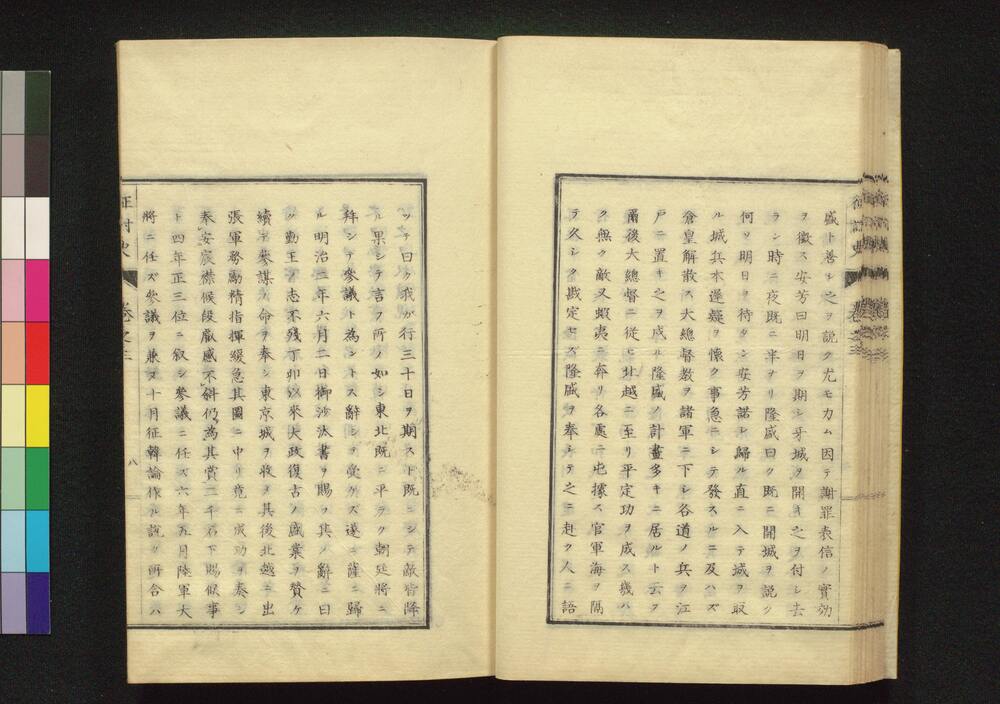 盛ト善シ之ヲ説ク尤モカム因テ謝罪表信ノ實効
ヲ徴ス安芳曰明日ヲ期シ牙城ヲ開キ之ヲ付シ去
ラン時ニ夜既ニ半ナリ隆盛曰ク既ニ開城ヲ説ク
何ソ明日ヲ待タン安芳諾シ歸ル直ニ入テ城ヲ収
ル城兵本遅疑ヲ懐ク事急ニシテ發スルニ及ハズ
倉皇解散ス大總督教ヲ諸軍ニ下シ各道ノ兵ヲ江
戸ニ置キ之ヲ戍ル隆盛ノ計畫多キニ居ルト云フ
爾後大總督ニ従ヒ北越ニ至リ平定功ヲ成ス幾ハ
ク無ク敵又蝦夷ニ奔リ各處ニ屯據ス官軍海ヲ隔
ラ久シク戡定セズ隆盛ヲ奉シテ之ニ赴ク人ニ語
ツテ曰ク我カ行三十日ヲ期スト既ニシテ敵皆降
ル果シテ言フ所ノ如シ東北既ニ平ラク朝廷將ニ
拜シテ參議ト為シトス辭シテ受ケズ遂ニ薩ニ歸
ル明治二年六月二日御沙汰書ヲ賜フ其ノ辭ニ曰
ク勤王ノ志不残丁卯以來大政復古ノ盛業ヲ賛ケ
續キ參謀ノ命ヲ奉シ東京城ヲ收メ其後北越ニ出
張軍務勵精指揮緩急其圖ニ中リ竟ニ成功ヲ奏シ
奉安宸襟候段叡感不斜仍為其賞二千石下賜候事
ト四年正三位ニ叙シ參議ニ任ズ六年五月陸軍大
將ニ任ズ參議ヲ兼ヌ十月征韓論作ル説ク所合ハ
征討史
卷之三
八